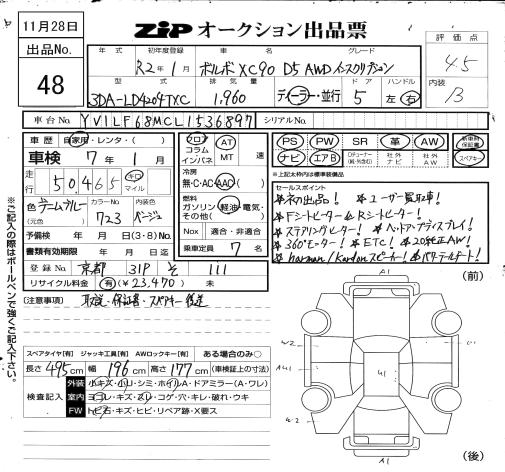 11月28日
ZIP オークション出品票
出品No.
48
年式 初年度登録 車名 グレード
R2年1月 ボルボ XC90 D5 AWD インスクリプション
評価点
4.5
型式 排気量 ドア ハンドル
3DA-LD4204TXC 1,960 ディーラー・並行 5 左・右
内装
B
車台No. YV1LF68MCL1536897 シリアルNo.
車歴 自家用・レンタ・( )
車検 7年1月
走行 50,465 キロ マイル
色 デニムブルー カラーNo. 723 内装色 ベージュ
(元色)
予備検 年 月 日(3・8)No.
書類有効期限 年 月 日迄
登録No. 京都 31P そ 111
リサイクル料金 有(¥23,470) 未
フロア コラム インパネ AT MT 速
冷房
無・C・AC・AAC( )
燃料
ガソリン・軽油・電気・
その他( )
Nox 適合・非適合
乗車定員 7名
PS PW SR 革 AW 新車時保証書
ナビ エアB 社外ナビ 社外AW スペアキー
★上記太枠内は標準装備品
セールスポイント
★初出品! ★ユーザー買取車!
★Fシートヒーター&Rシートヒーター!
★ステアリングヒーター! ★ヘッドアップディスプレイ!
★360°モニター! ★ETC! ★20純正AW!
★harman/kardonスピーカー! ★パワーテールゲート!
(注意事項) 取説・保証書・スペアキー後送
※ご記入の際はボールペンで強くご記入下さい。
(前)
A1
W2 U1
AW1 U1 A1
W2
A1
(後)
スペアタイヤ[有] ジャッキ工具[有] AWロックキー[有] ある場合のみ○
長さ 495cm 幅 196cm 高さ 177cm (車検証上の寸法)
検査記入
外装 小キズ・小U・シミ・ホイルA・ドアミラー(A・ワレ)
室内 ヨゴレ・キズ・スレ・コゲ・穴・キレ・破れ・ウキ
FW トビ石・キズ・ヒビ・リペア跡・X要ス